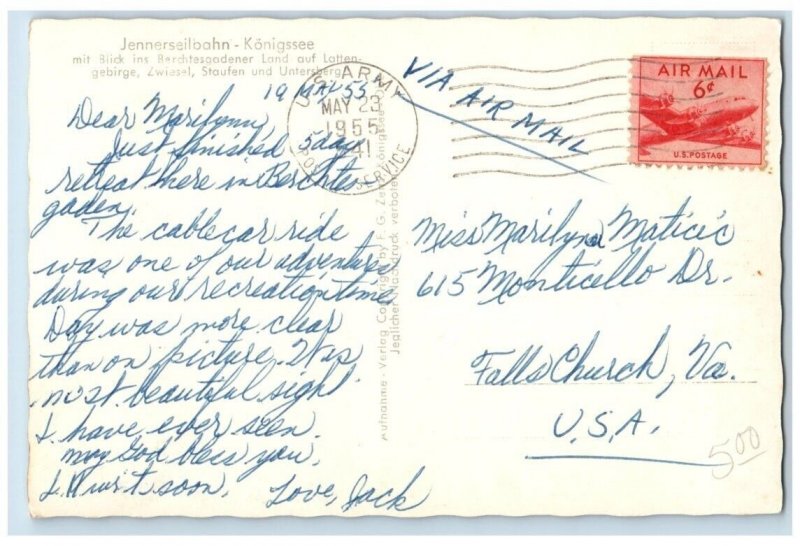 Jennerseilbahn - Königssee
mit Blick ins Berchtesgadener Land auf Latten-
gebirge, Zwiesel, Staufen und Untersberg
19 May 55
Dear Marilynn,
Just finished 5 day
retreat here in Berchtes-
gaden.
The cablecar ride
was one of our adventures
during our recreation time
Day was more clear
than on picture. It was
most beautiful sight
I have ever seen.
May God bless you,
I'll write soon.
Love, Jack
Aufnahme - Verlag Copyright by F. G. Königssee
Jeglicher Nachdruck verboten
U.S. ARMY
MAY 23
1955
41
POSTAL SERVICE
VIA AIR MAIL
AIR MAIL
6¢
U.S. POSTAGE
Miss Marilynn Maticic
615 Monticello Dr.
Falls Church, Va.
U.S.A.
5.00